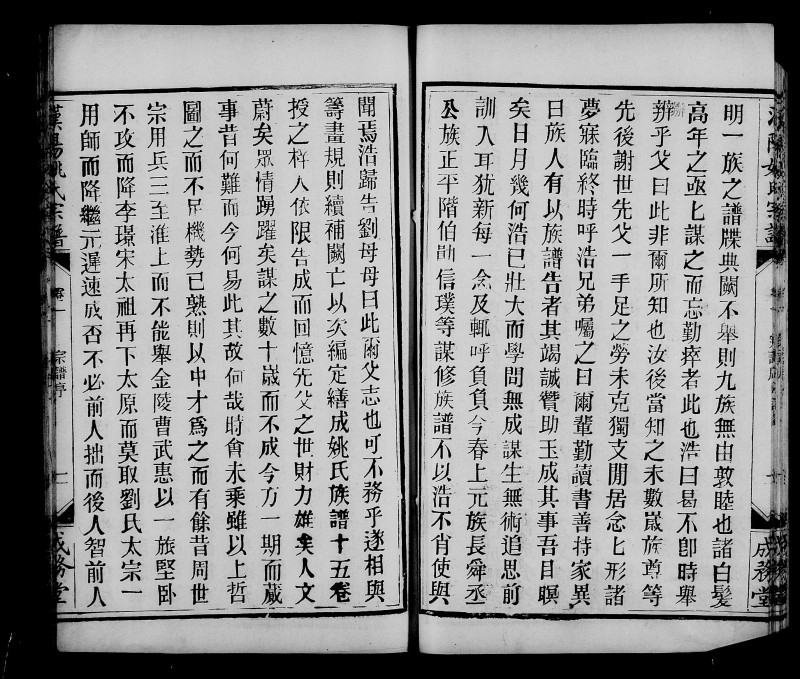 明一族之譜牒典闕不舉則九族無由敦睦也諸白髮
高年之亟亟謀之而忘勤瘁者此也浩曰曷不卽時舉
辦乎父曰此非爾所知也汝後當知之未數歲族尊等
先後謝世先父一手足之勞未克獨支閒居念匕形諸
夢寐臨終時呼浩兄弟囑之曰爾輩勤讀書善持家異
日族人有以族譜告者其竭誠贊助玉成其事吾目瞑
矣日月幾何浩已壯大而學問無成謀生無術追思前
訓入耳猶新每一念及輒呼負負今春上元族長舜丞
公族正平階伯勛信璞等謀修族譜不以浩不肖使與
成務堂
聞焉浩歸告劉母母曰此爾父志也可不務乎遂相與
籌畫規則續補闕亡以次編定繕成姚氏族譜十五卷
授之梓人依限告成而回憶先父之世財力雄矣人文
蔚矣眾情踴躍矣謀之數十歲而不成今方一期而蕆
事昔何難而今何易此其故何哉時會未乘雖以上哲
圖之而不足機勢已熟則以中才爲之而有餘昔周世
宗用兵三至淮上而不能舉金陵曹武惠以一旅堅卧
不攻而降李璟宋太祖再下太原而莫取劉氏太宗一
用師而降繼元遲速成否不必前人拙而後人智前人
漢陽姚氏宗譜
卷一
宗譜序
成務堂